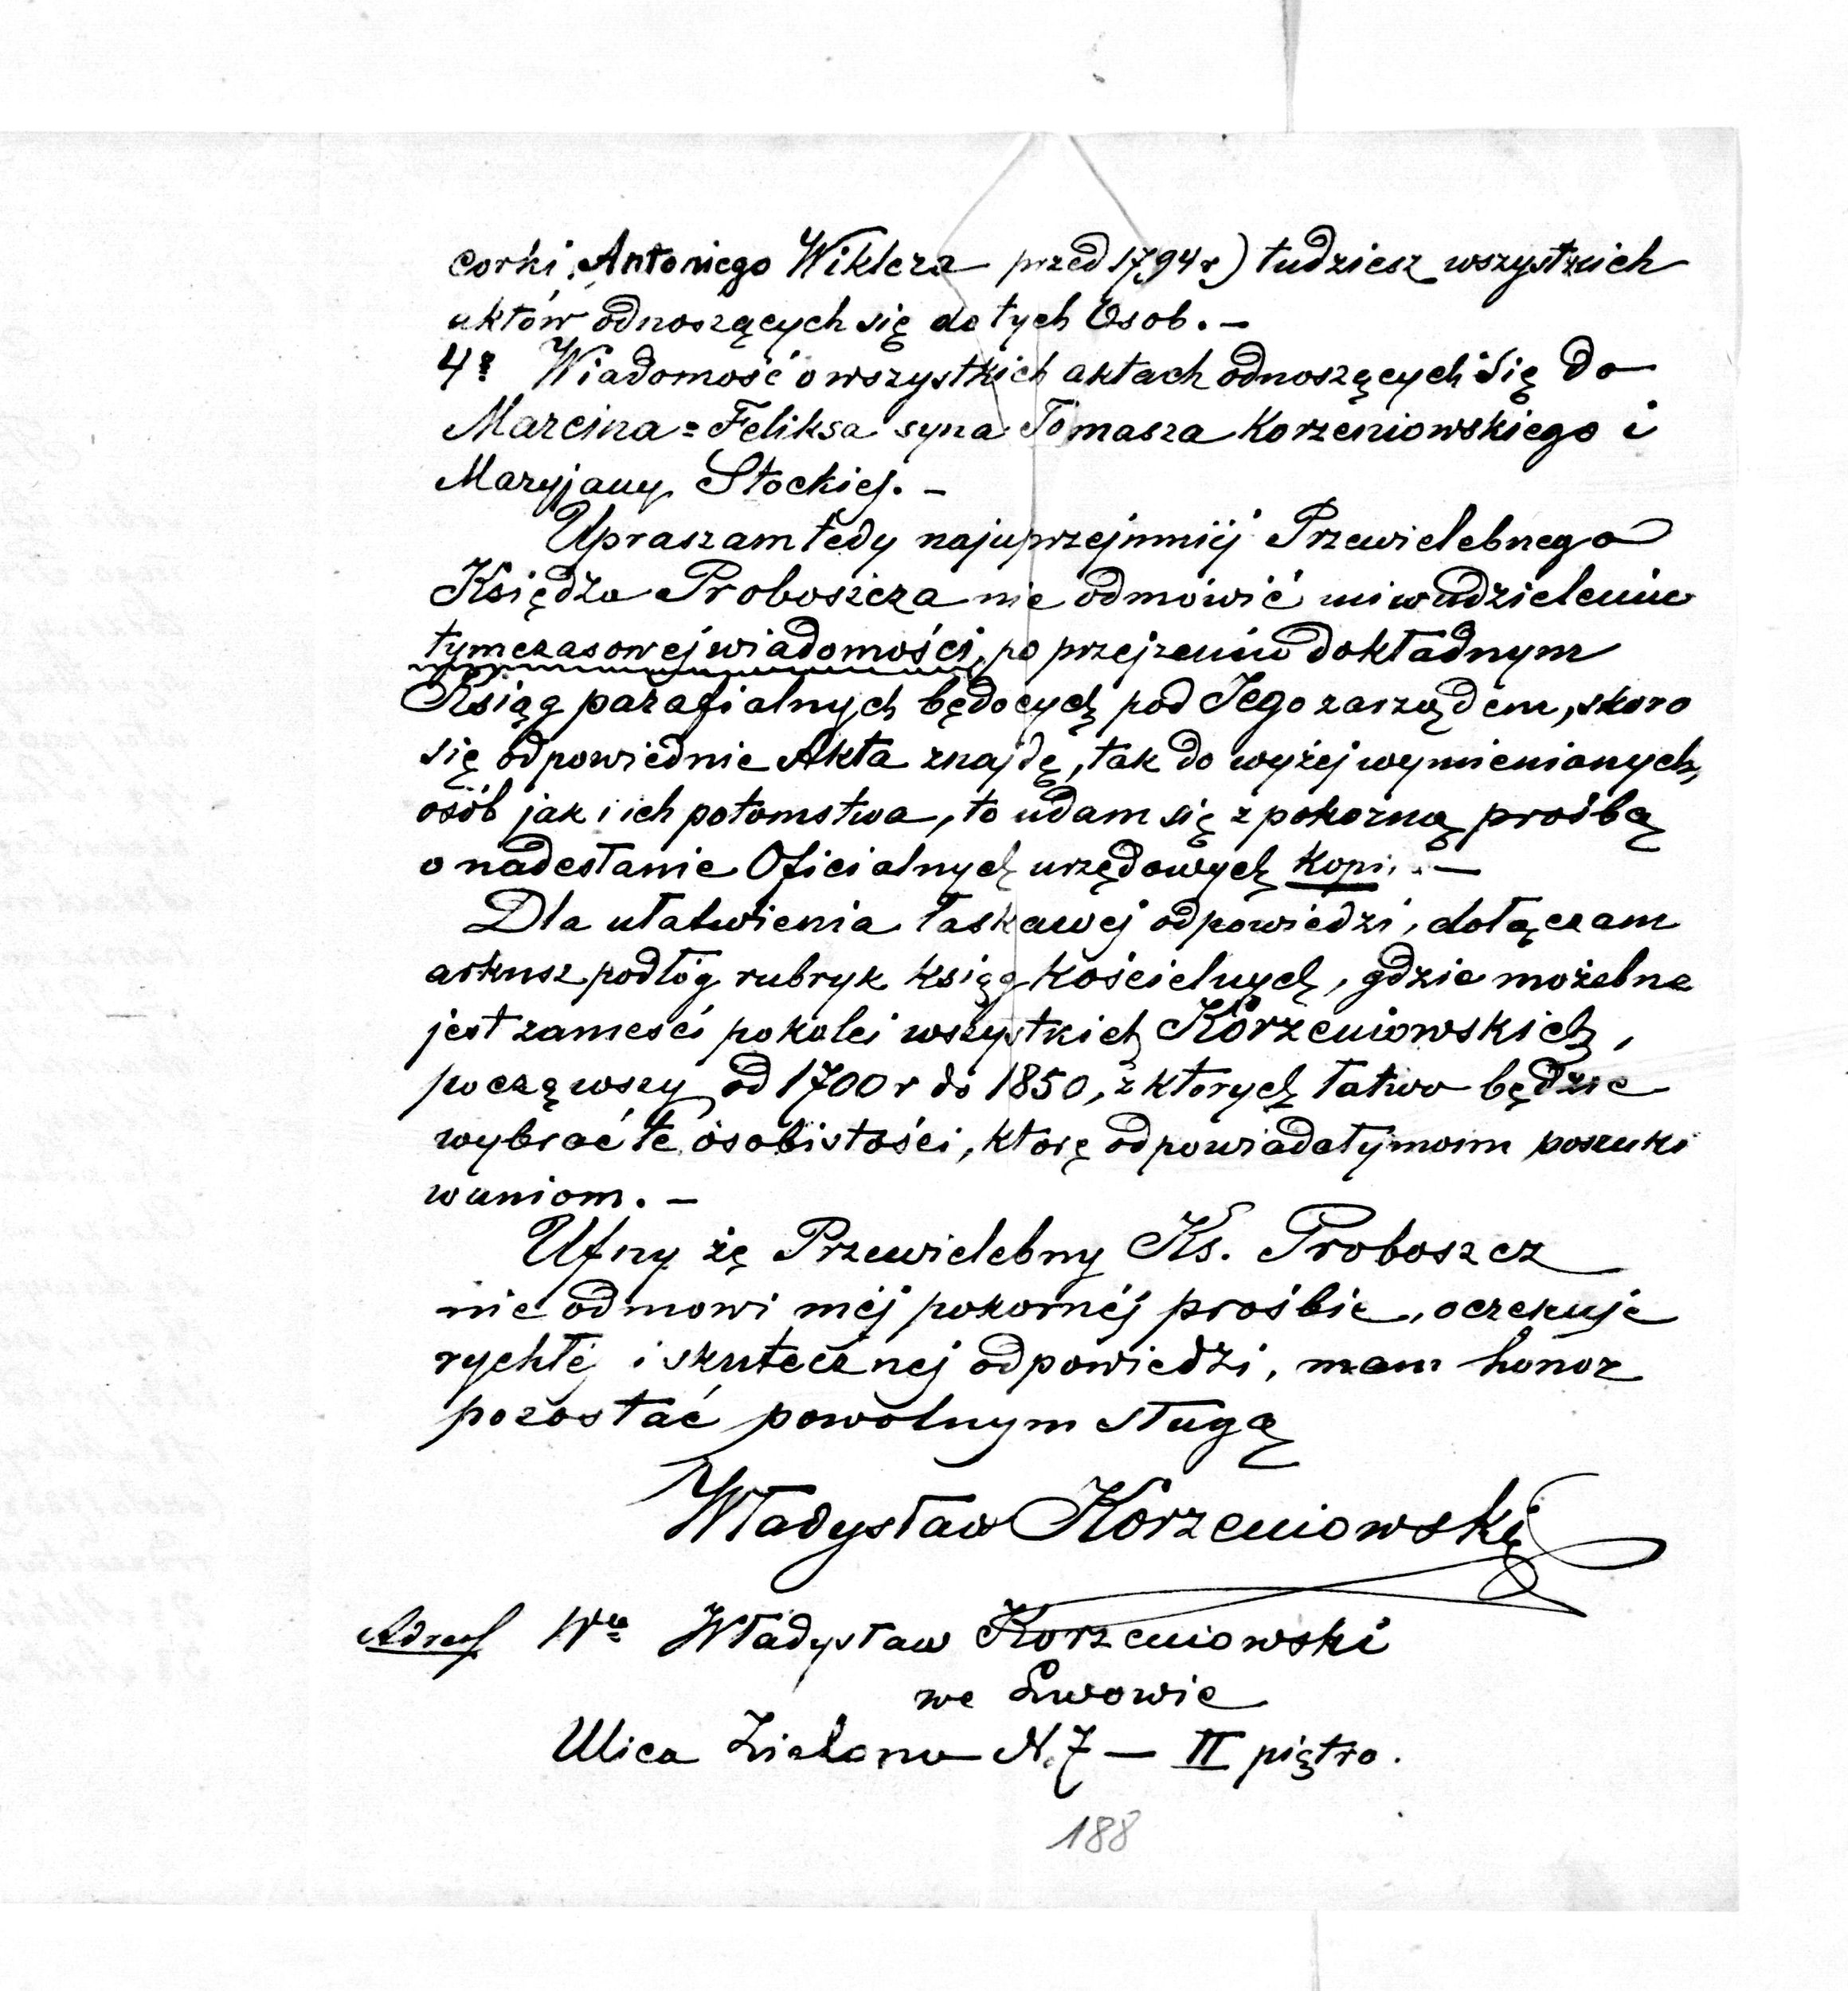 corki Antoniego Wiklera przed 1794 r) tudziesz wszystkich
aktów odnoszących się do tych Osob. –
4º Wiadomość o wszystkich aktach odnoszących się do
Marcina=Feliksa syna Tomasza Korzeniowskiego i
Maryjany Stockiej. –
Upraszam tedy najuprzejmiij Przewielebnego
Księdza Proboszcza nie odmówić mi w udzieleniu
tymczasowej wiadomości, po przejzeniu dokładnym
Ksiąg parafialnych będocych pod Jego zarządem, skoro
się odpowiednie Akta znajdę, tak do wyżej wymienianych
osób jak i ich potomstwa, to udam się z pokorną prośbą
o nadesłanie Oficialnych urzędowych kopi. –
Dla ułatwienia łaskawej odpowiedzi, dołączam
arkusz podłóg rubryk ksiąg kościelnych, gdzie możebne
jest zameści pokolei wszystkich Korzeniowskich,
począwszy od 1700 r do 1850, z ktorych łatwo będzie
wybrać te osobistości, ktorę odpowiadaty moim poszuki
waniom. –
Ufny żę Przewielebny Ks. Proboszcz
nie odmowi mėj pokornėj prośbie, oczekuje
rychłėj i skutecznej odpowiedzi, mam honor
pozostać powolnym sługą
Władysław Korzeniowski
Adres Wy Władysław Korzeniowski
we Lwowie
Ulica Zielona N. 7 – II piętro.
188